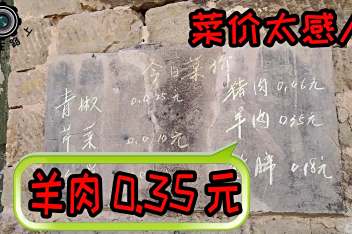 菜价太感人
上
今日菜价
青椒 0.035元
芹菜 0.010元
猪肉 0.46元
羊肉 0.35元
0.18元
羊肉 0.35元